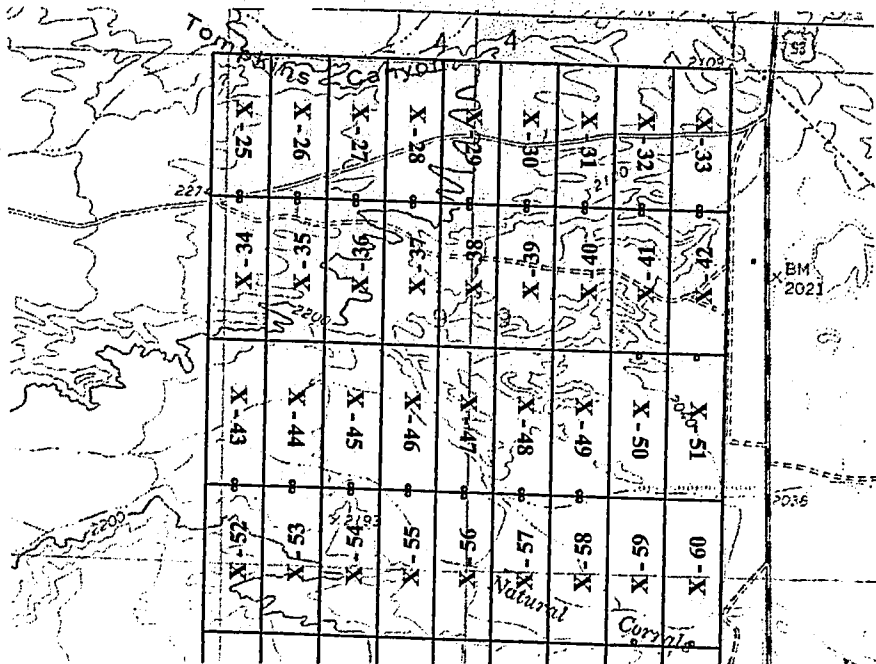 Tompkins Canyon
4 4
93
2105
X-25 X-26 X-27 X-28 X-29 X-30 X-31 X-32 X-33
2274
X-34 X-35 X-36 X-37 X-38 X-39 X-40 X-41 X-42
BM
2021
2200
X-43 X-44 X-45 X-46 X-47 X-48 X-49 X-50 X-51
2036
2200
2193
X-52 X-53 X-54 X-55 X-56 X-57 X-58 X-59 X-60
Natural Corrals